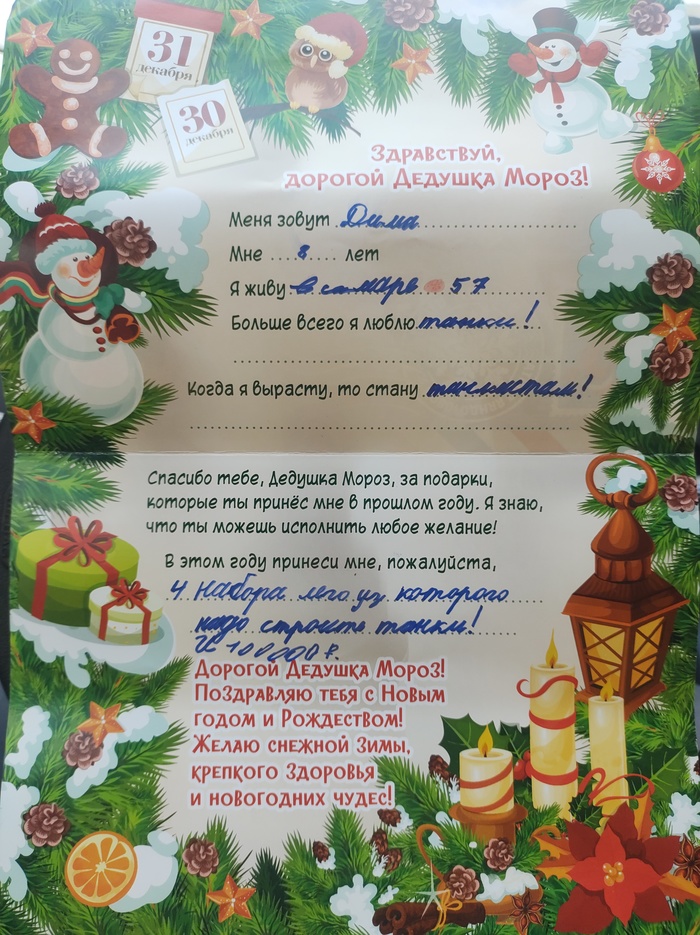 31
декабря
30
декабря
Здравствуй,
дорогой Дедушка Мороз!
Меня зовут Дима
Мне 8 лет
Я живу в самаре 57
Больше всего я люблю танки!
Когда я вырасту, то стану танкистам!
Спасибо тебе, Дедушка Мороз, за подарки,
которые ты принёс мне в прошлом году. Я знаю,
что ты можешь исполнить любое желание!
В этом году принеси мне, пожалуйста,
4 набора лего из которого
надо строить танки!
И 100000 р.
Дорогой Дедушка Мороз!
Поздравляю тебя с Новым
годом и Рождеством!
Желаю снежной Зимы,
крепкого Здоровья
и новогодних чудес!